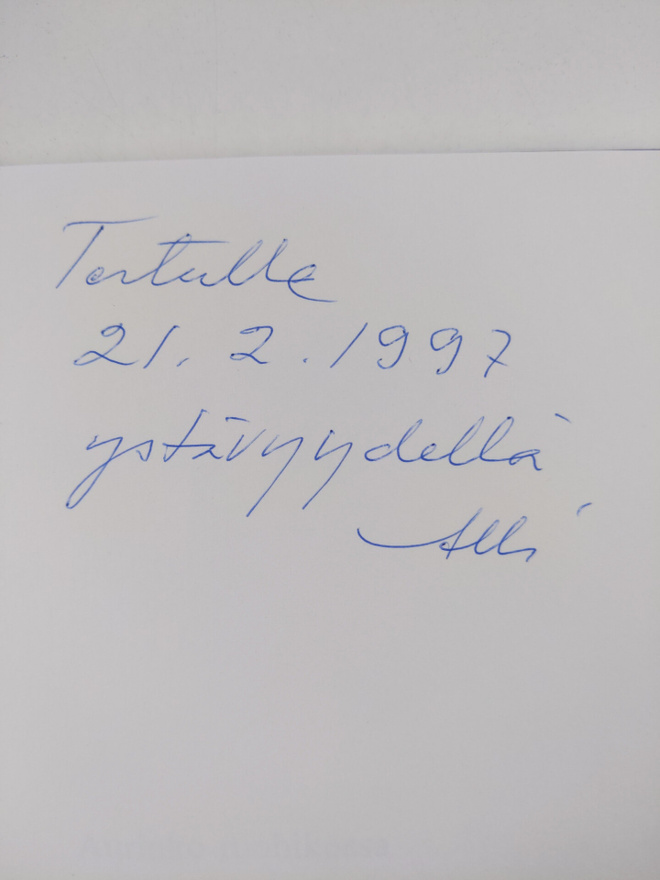 Tertulle
21.2.1997
ystävyydellä
Alli